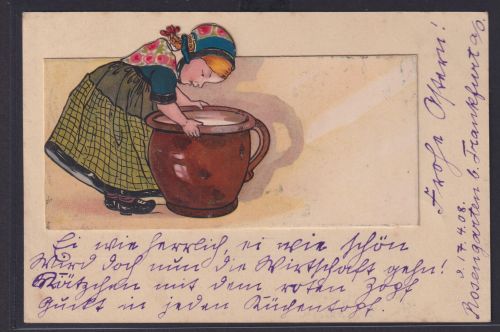 Ei wie herrlich, ei wie schön
Wird doch nun die Wirtschaft gehn!
Kätzchen mit dem roten Zopf
Guckt in jeden Küchentopf.
Frohe Ostern!
Rosengarten b. Frankfurt a/O.
d. 17.4.08.